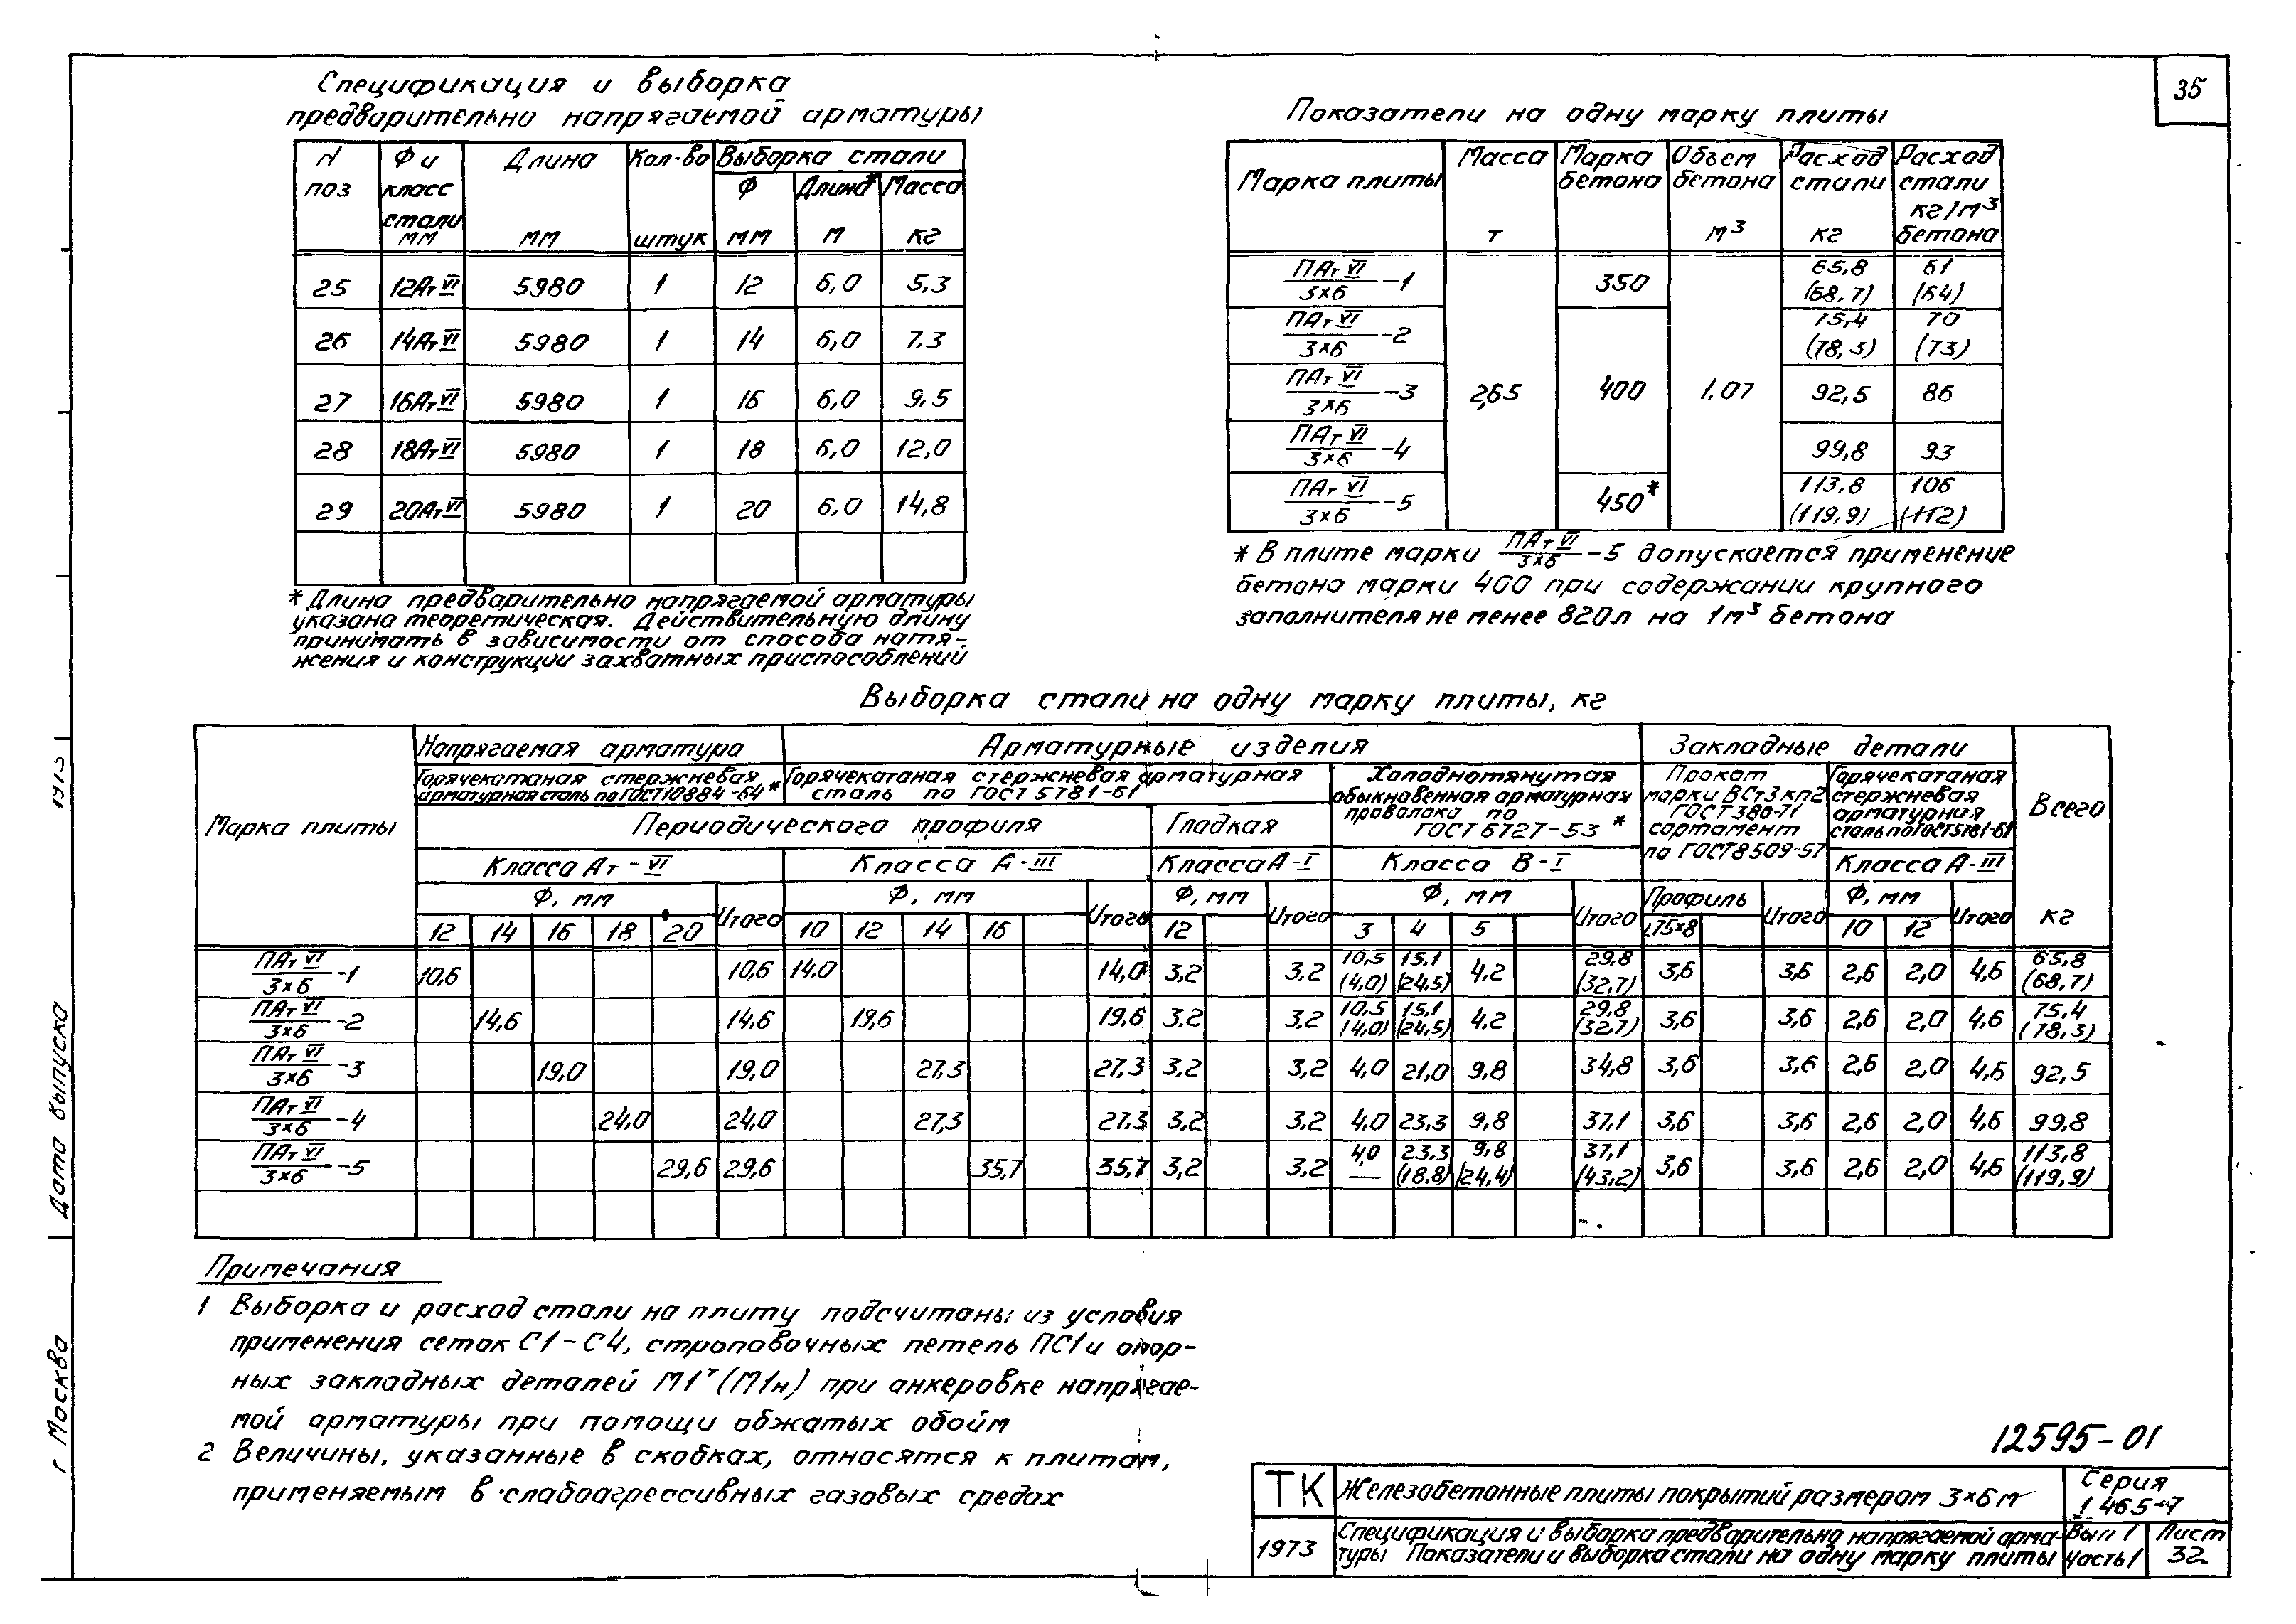 35
Спецификация и выборка
предварительно напрягаемой арматуры
N поз | Ф и класс стали мм | Длина мм | Кол-во штук | Выборка стали
Ф мм | Длина* м | Масса кг
25 | 12Ат VI | 5980 | 1 | 12 | 6,0 | 5,3
26 | 14Ат VI | 5980 | 1 | 14 | 6,0 | 7.3
27 | 16Ат VI | 5980 | 1 | 16 | 6,0 | 9,5
28 | 18Ат VI | 5980 | 1 | 18 | 6,0 | 12,0
29 | 20Ат VI | 5980 | 1 | 20 | 6,0 | 14,8
* Длина предварительно напрягаемой арматуры
указана теоретическая. Действительную длину
принимать в зависимости от способа натя-
жения и конструкции захватных приспособлений
Показатели на одну марку плиты
Марка плиты | Масса т | Марка бетона | Объем бетона м³ | Расход стали кг | Расход стали кг/м³ бетона
ПАт VI/3×6 -1 | 2,65 | 350 | 1.07 | 65,8 (68,7) | 61 (64)
ПАт VI/3×6 -2 | 400 | 75,4 (78,3) | 70 (73)
ПАт VI/3×6 -3 | 92,5 | 86
ПАт VI/3×6 -4 | 99,8 | 93
ПАт VI/3×6 -5 | 450* | 113,8 (119,9) | 106 (112)
* В плите марки ПАт VI/3×6 -5 допускается применение
бетона марки 400 при содержании крупного
заполнителя не менее 820л на 1м³ бетона
Выборка стали на одну марку плиты, кг
Марка плиты | Напрягаемая арматура | Арматурные изделия | Закладные детали | Всего кг
Горячекатаная стержневая арматурная сталь по ГОСТ 10884-64* | Горячекатаная стержневая арматурная сталь по ГОСТ 5781-61 | Холоднотянутая обыкновенная арматурная проволока по ГОСТ 6727-53* | Прокат марки ВСт3кп2 ГОСТ 380-71 сортамент по ГОСТ 8509-57 | Горячекатаная стержневая арматурная сталь по ГОСТ 5781-61
Периодического профиля | Гладкая
Класса Ат-VI | Класса А-III | Класса А-I | Класса В-I | Класса А-III
Ф, мм | Итого | Ф, мм | Итого | Ф, мм | Итого | Ф, мм | Итого | Профиль | Итого | Ф, мм | Итого
12 | 14 | 16 | 18 | 20 | 10 | 12 | 14 | 16 | 12 | 3 | 4 | 5 | L75×8 | 10 | 12
ПАт VI/3×6 -1 | 10,6 | 10,6 | 14.0 | 14,0 | 3,2 | 3,2 | 10,5 (4,0) | 15,1 (24,5) | 4,2 | 29,8 (32,7) | 3,6 | 3,6 | 2,6 | 2,0 | 4,6 | 65,8 (68,7)
ПАт VI/3×6 -2 | 14,6 | 14,6 | 19,6 | 19,6 | 3,2 | 3,2 | 10,5 (4,0) | 15,1 (24,5) | 4.2 | 29,8 (32,7) | 3,6 | 3,6 | 2,6 | 2,0 | 4,6 | 75,4 (78,3)
ПАт VI/3×6 -3 | 19,0 | 19,0 | 27,3 | 27,3 | 3,2 | 3,2 | 4,0 | 21,0 | 9,8 | 34,8 | 3,6 | 3,6 | 2,6 | 2,0 | 4,6 | 92,5
ПАт VI/3×6 -4 | 24,0 | 24,0 | 27,3 | 27,3 | 3,2 | 3,2 | 4,0 | 23,3 | 9,8 | 37,1 | 3,6 | 3,6 | 2,6 | 2,0 | 4,6 | 99,8
ПАт VI/3×6 -5 | 29,6 | 29,6 | 35,7 | 35,7 | 3,2 | 3,2 | 4,0 — | 23,3 (18,8) | 9,8 (24,4) | 37,1 (43,2) | 3,6 | 3,6 | 2,6 | 2,0 | 4,6 | 113,8 (119,9)
Примечания
1 Выборка и расход стали на плиту подсчитаны из условия
применения сеток С1-С4, строповочных петель ПС1 и опор-
ных закладных деталей М1т (М1н) при анкеровке напрягае-
мой арматуры при помощи обжатых обойм
2 Величины, указанные в скобках, относятся к плитам,
применяемым в слабоагрессивных газовых средах
12595-01
ТК | Железобетонные плиты покрытий размером 3×6м | Серия 1 465-7
1973 | Спецификация и выборка предварительно напрягаемой арма-
туры Показатели и выборка стали на одну марку плиты | Вып 1 Часть 1 | Лист 32
г Москва
Дата выпуска
1973